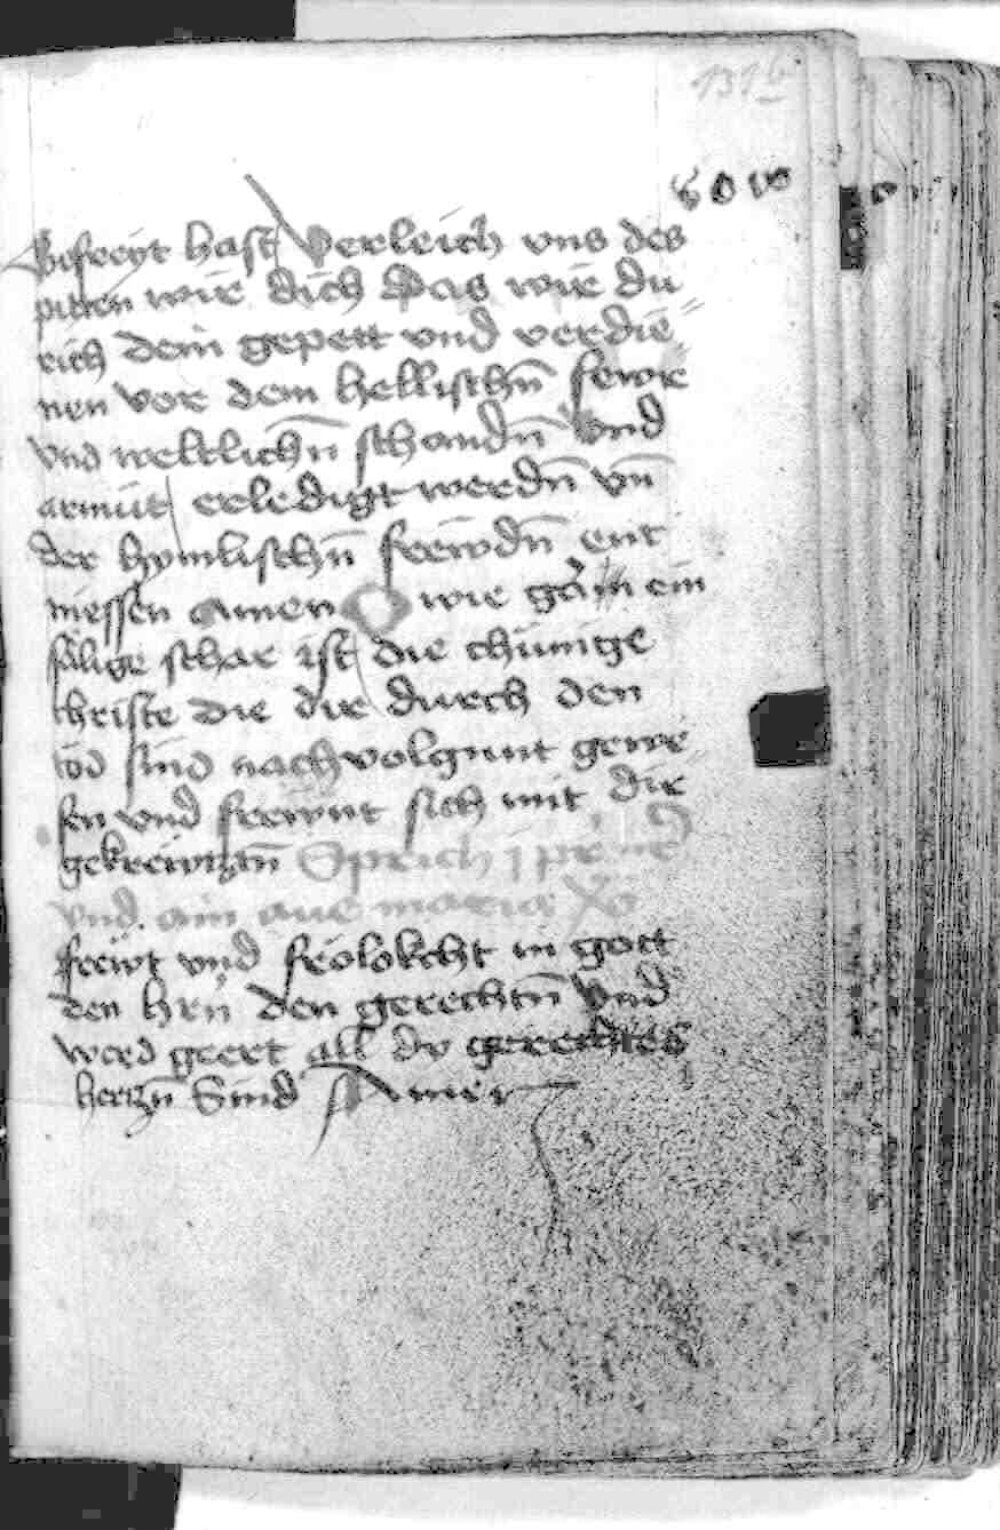 131b
gefreyt hast Verleich vns des
pitten wir dich Das wir du
rich dein gepett vnd verdie
nen vor dem hellischn̄ fewr
vnd weltlichn̄ schandn̄ Vnd
armüt erledigt werdn̄ vn̄
der hymlischn̄ frewdn̄ ent
niessen amen O wie gar ein
sälige schar ist die chünige
christe die dir durch den
tod sind nachvolgunt gewe
sen vnd frewnt sich mit dir
gekrewtzn̄ Sprich j pr nr
vnd ain aue maria
frewt vnd frölokcht in gott
den hrn̄ den gerechtn̄ Vnd
werd geert all dy gerechtes
hertzn̄ Sind Amen